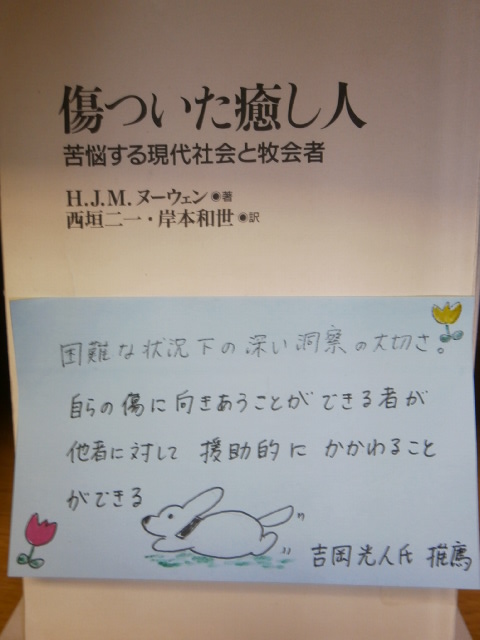 傷ついた癒し人
苦悩する現代社会と牧会者
H.J.M. ヌーウェン◉著
西垣二一・岸本和世◉訳
困難な状況下の深い洞察の大切さ。
自らの傷に向きあうことができる者が
他者に対して 援助的に かかわること
ができる
吉岡光人氏 推薦